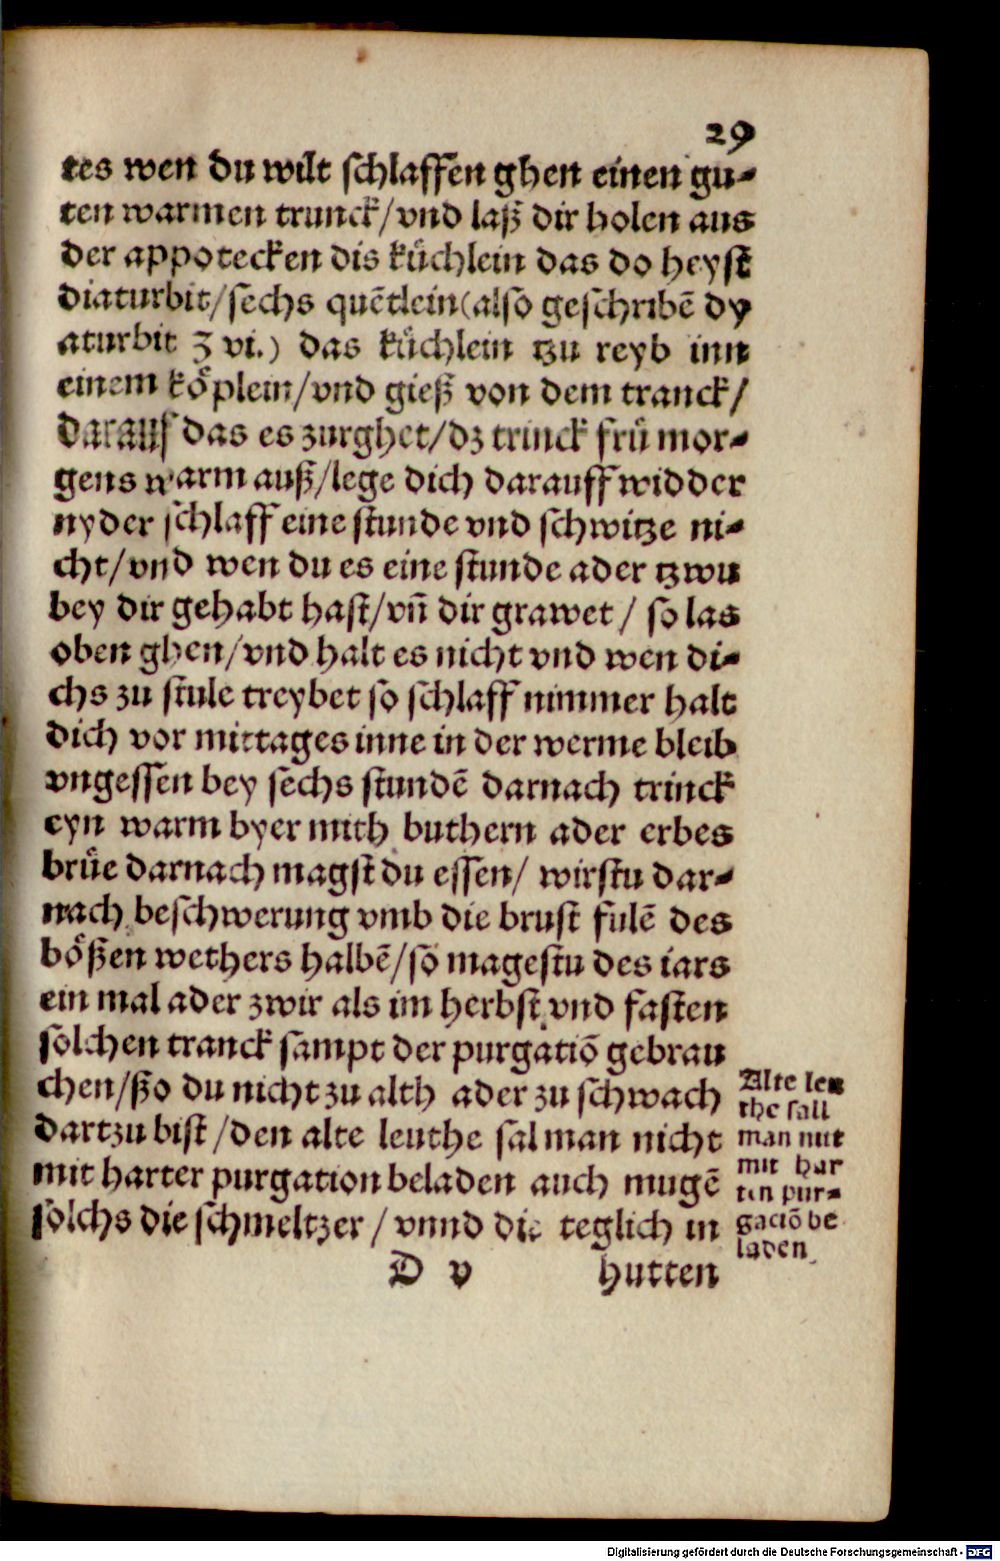 29
tes wen du wilt schlaffen ghen einen gu-
ten warmen trunck/vnd laß dir holen aus
der appotecken dis kůchlein das do heyst
diaturbit/sechs quētlein(also geschribē dy
aturbit ʒ vi.) das kůchlein tzu reyb inn
einem kőplein/vnd gieß von dem tranck/
darauf das es zurghet/dz trinck frů mor-
gens warm auß/lege dich darauff widder
nyder schlaff eine stunde vnd schwitze ni-
cht/vnd wen du es eine stunde ader tzwu
bey dir gehabt hast/vñ dir grawet / so las
oben ghen/vnd halt es nicht vnd wen di-
chs zu stule treybet so schlaff nimmer halt
dich vor mittages inne in der werme bleib
vngessen bey sechs stundē darnach trinck
eyn warm byer mith buthern ader erbes
brůe darnach magst du essen/ wirstu dar-
nach beschwerung vmb die brust fulē des
bőßen wethers halbē/so magestu des iars
ein mal ader zwir als im herbst vnd fasten
solchen tranck sampt der purgatiō gebrau
chen/ßo du nicht zu alth ader zu schwach
dartzu bist /den alte leuthe sal man nicht
mit harter purgation beladen auch mugē
solchs die schmeltzer / vnnd die teglich in
Alte leu
the sall
man nit
mit har
ten pur-
gaciō be
laden
D v hutten
Digitalisierung gefördert durch die Deutsche Forschungsgemeinschaft - DFG